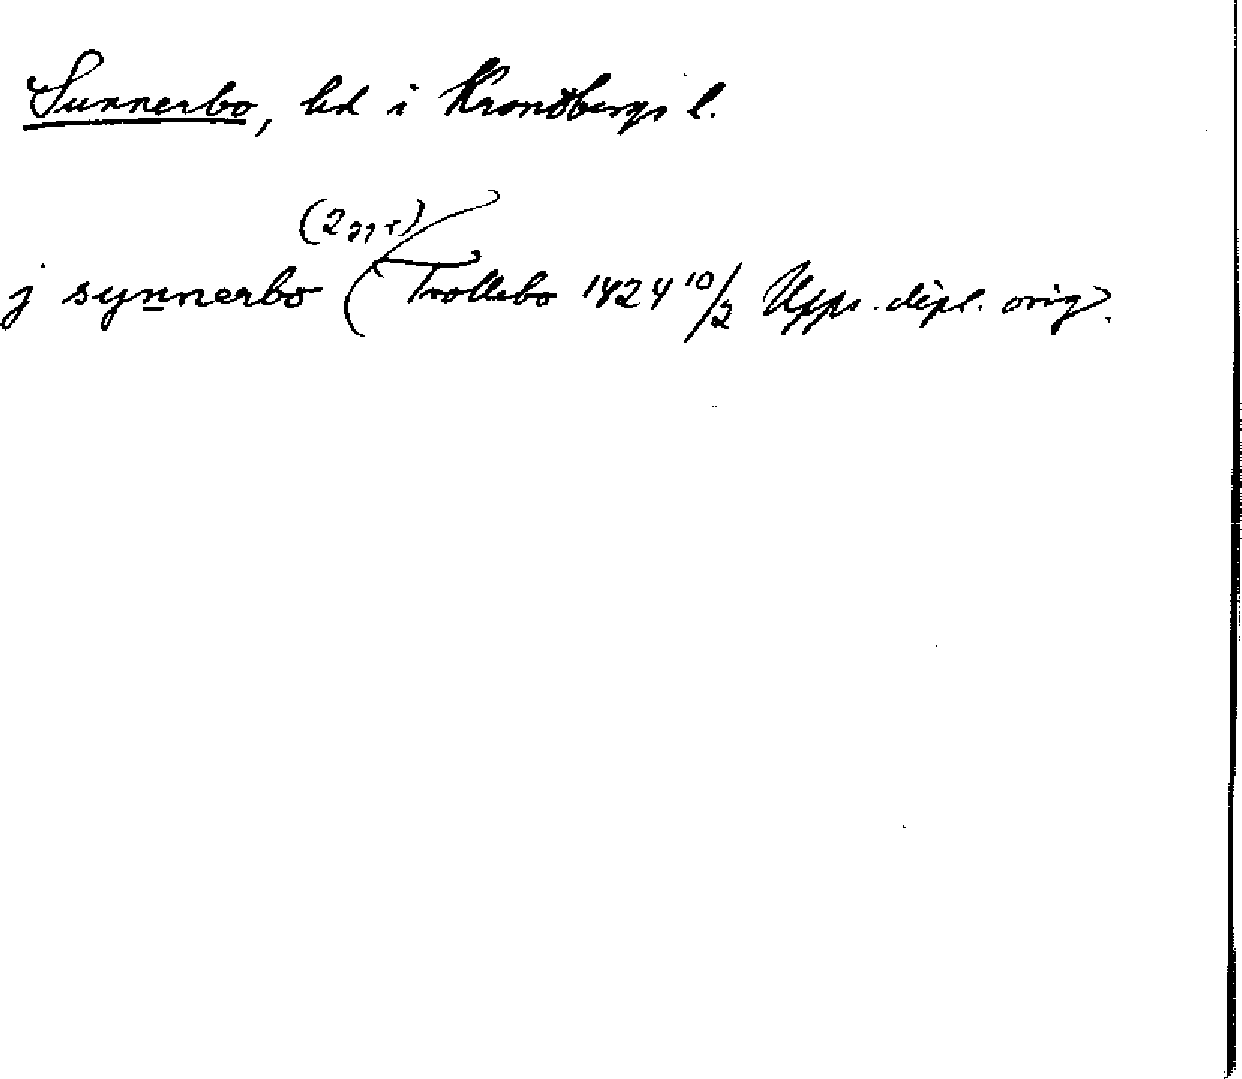 Sunnerbo, hd i Kronobergs l.
(2 ggr)
j synnerbo ( Trollebo 1424 10/2 Upps. dipl. orig.